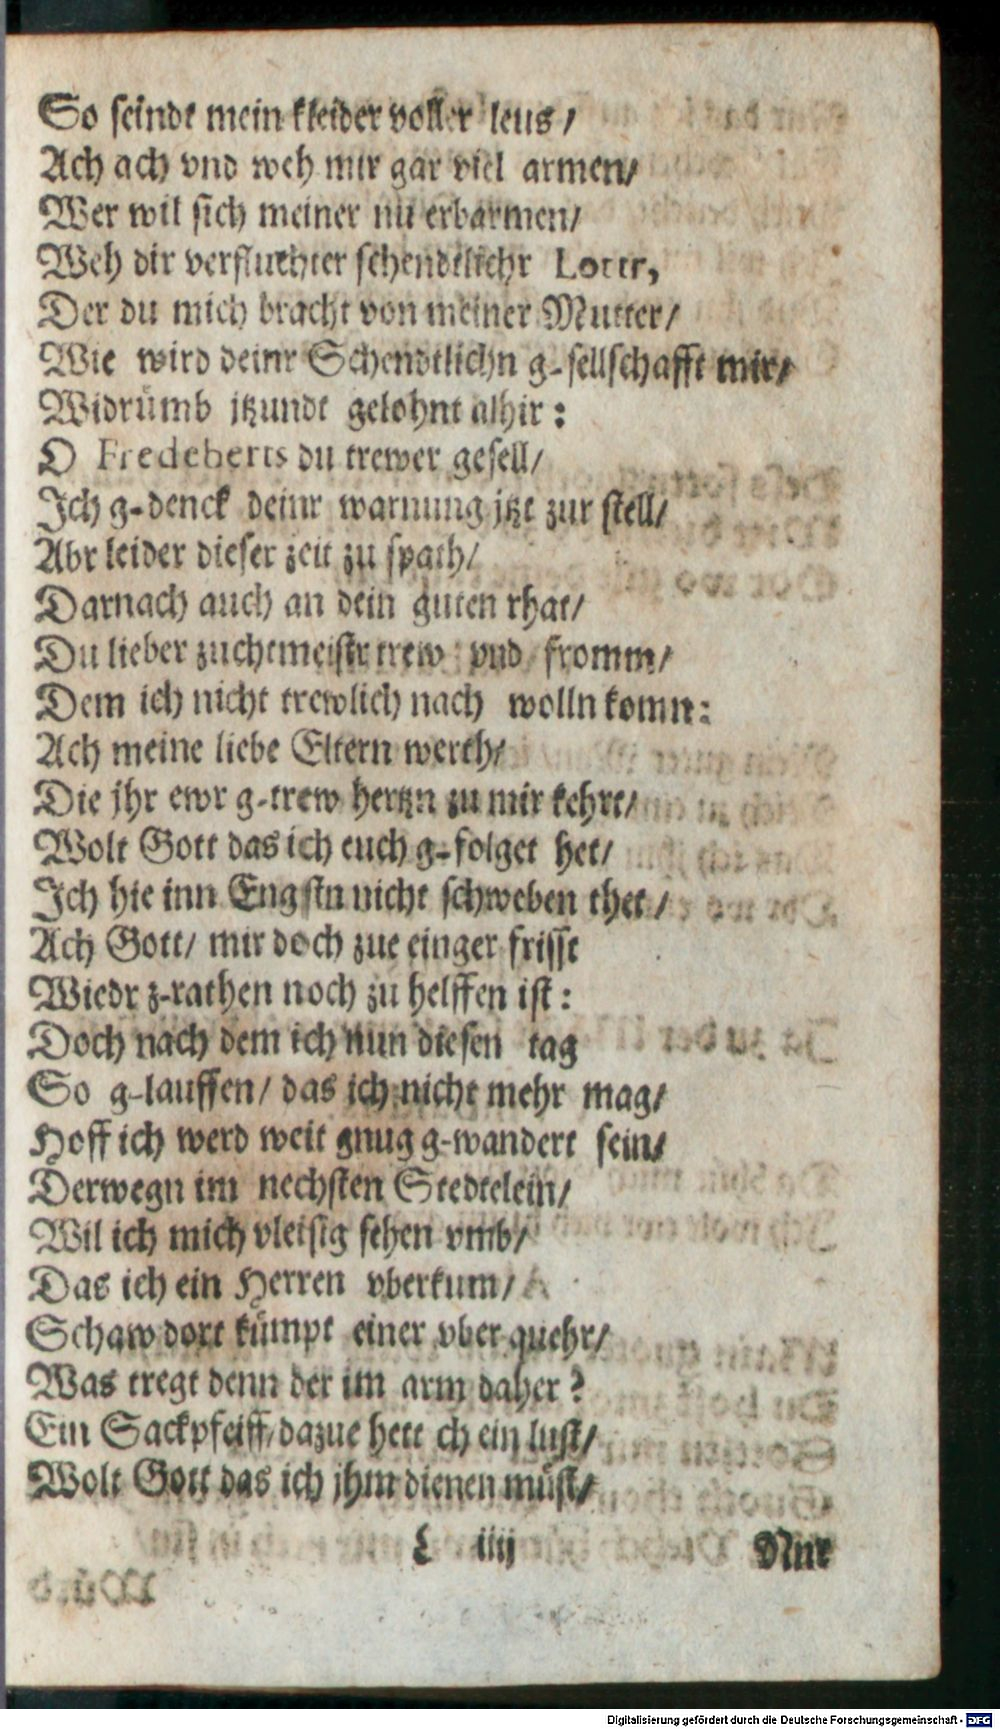 So seindt mein kleider voller leus /
Ach ach vnd weh mir gar viel armen/
Wer wil sich meiner nu erbarmen/
Weh dir verfluchter schendtlichr Lottr,
Der du mich bracht von meiner Mutter/
Wie wird deinr Schendtlichn g-sellschafft mir/
Widrümb jtzundt gelohnt alhir :
O Fredeberts du trewer gesell/
Ich g-denck deinr warnung jtzt zur stell/
Abr leider dieser zeit zu spath/
Darnach auch an dein guten rhat/
Du lieber zuchtmeistr trew vnd fromm/
Dem ich nicht trewlich nach wolln komn:
Ach meine liebe Eltern werth/
Die jhr ewr g-trew hertzn zu mir kehrt/
Wolt Gott das ich euch g-folget het/
Ich hie inn Engstn nicht schweben thet /
Ach Gott/ mir doch zue einger frisst
Wiedr z-rathen noch zu helffen ist :
Doch nach dem ich nun diesen tag
So g-lauffen/ das ich nicht mehr mag/
Hoff ich werd weit gnug g-wandert sein/
Derwegn im nechsten Stedtelein/
Wil ich mich vleisig sehen vmb/
Das ich ein Herren vberkum/
Schaw dort kümpt einer vber quehr/
Was tregt denn der im arm daher ?
Ein Sackpfeiff/ dazue hett ch ein lust/
Wolt Gott das ich jhm dienen müst/
iiij Nur
Digitalisierung gefördert durch die Deutsche Forschungsgemeinschaft - DFG